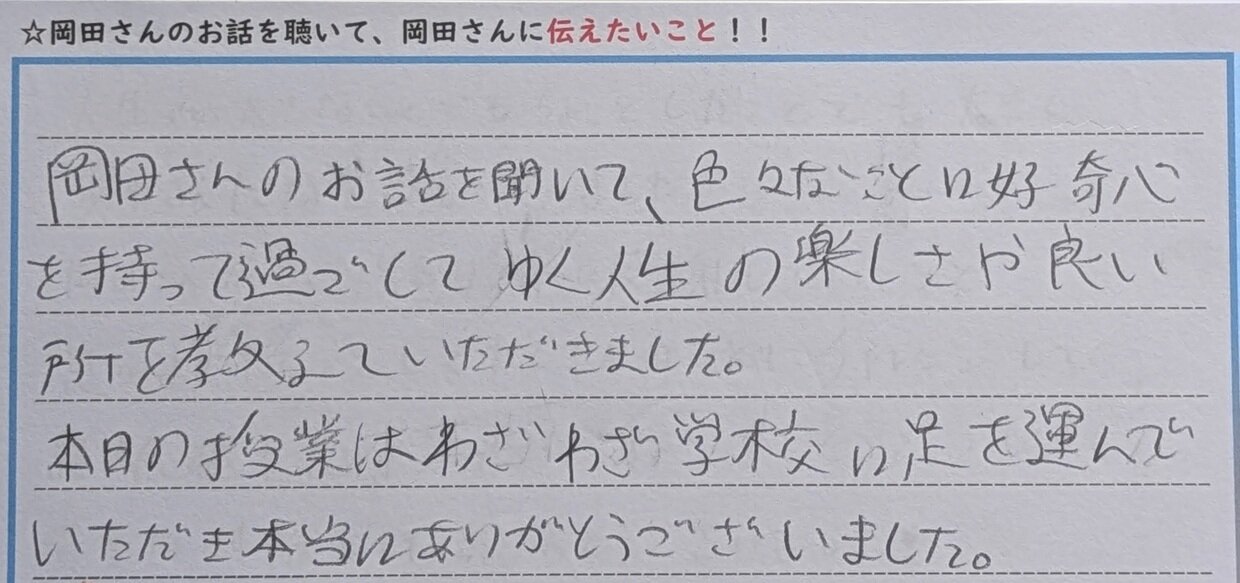 ☆岡田さんのお話を聴いて、岡田さんに伝えたいこと！！
岡田さんのお話を聞いて、色々なことに好奇心
を持って過ごしてゆく人生の楽しさや良い
所を教えていただきました。
本日の授業はわざわざ学校に足を運んで
いただき本当にありがとうございました。